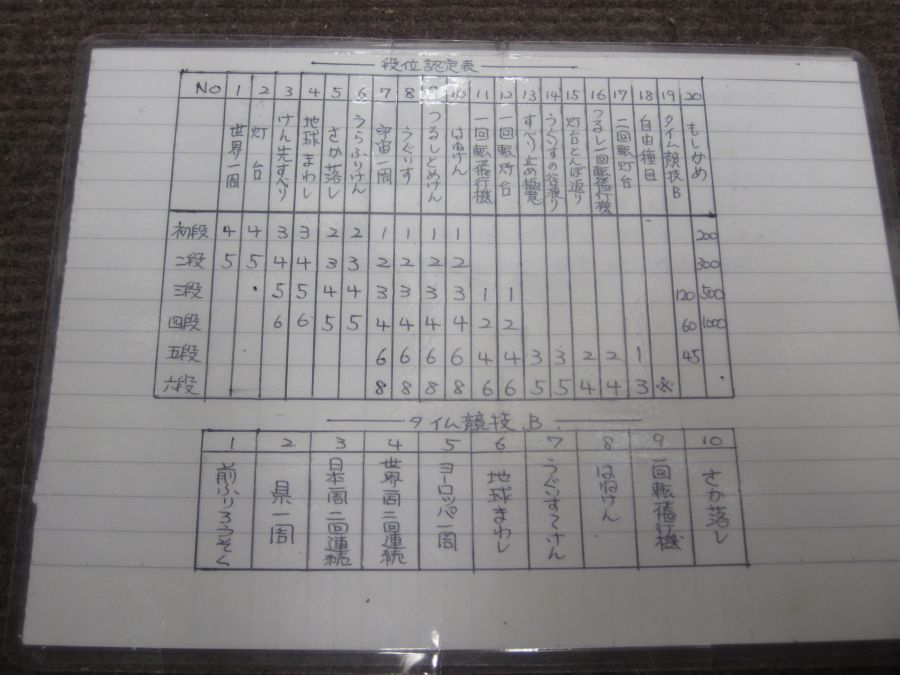 段位認定表
No 1 2 3 4 5 6 7 8 9 10 11 12 13 14 15 16 17 18 19 20
世界一周
灯台
けん先すべり
地球まわし
さか落し
うらふりけん
宇宙一周
うぐいす
つるしとめけん
はねけん
一回転飛行機
一回転灯台
すべり止め極意
うぐいすの谷渡り
灯台とんぼ返り
つるし一回転飛行機
二回転灯台
自由種目
タイム競技B
もしかめ
初段 4 4 3 3 2 2 1 1 1 1 200
二段 5 5 4 4 3 3 2 2 2 2 300
三段 5 5 4 4 3 3 3 3 1 1 120 500
四段 6 6 5 5 4 4 4 4 2 2 60 1000
五段 6 6 6 6 4 4 3 3 2 2 1 45
六段 8 8 8 8 6 6 5 5 4 4 3 ※
タイム競技.B.
1 2 3 4 5 6 7 8 9 10
前ふりろうそく
県一周
日本一周二回連続
世界一周二回連続
ヨーロッパ一周
地球まわし
うぐいすてけん
はねけん
一回転飛行機
さか落し